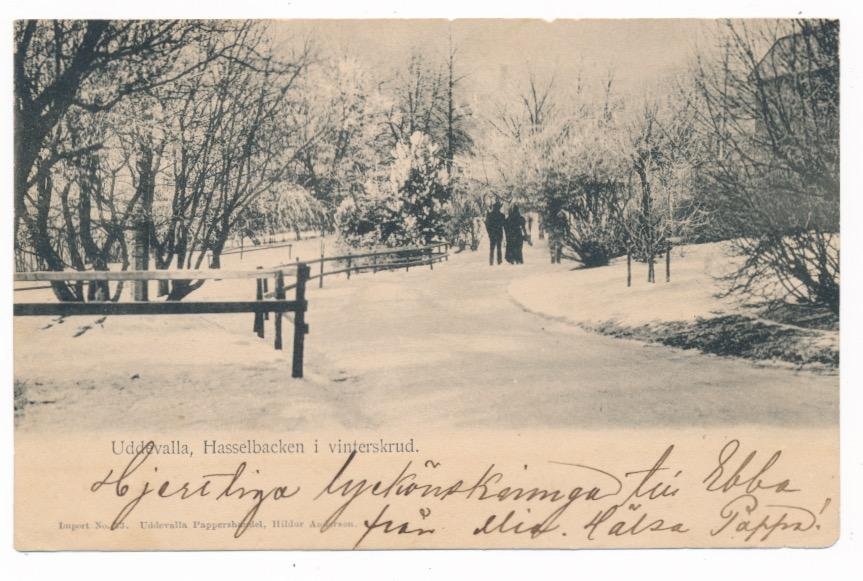 Uddevalla, Hasselbacken i vinterskrud.
Hjertliga lyckönskninga till Ebba
från Mia. Hälsa Pappa!
Import No. 33. Uddevalla Pappershandel, Hildur Anderson.